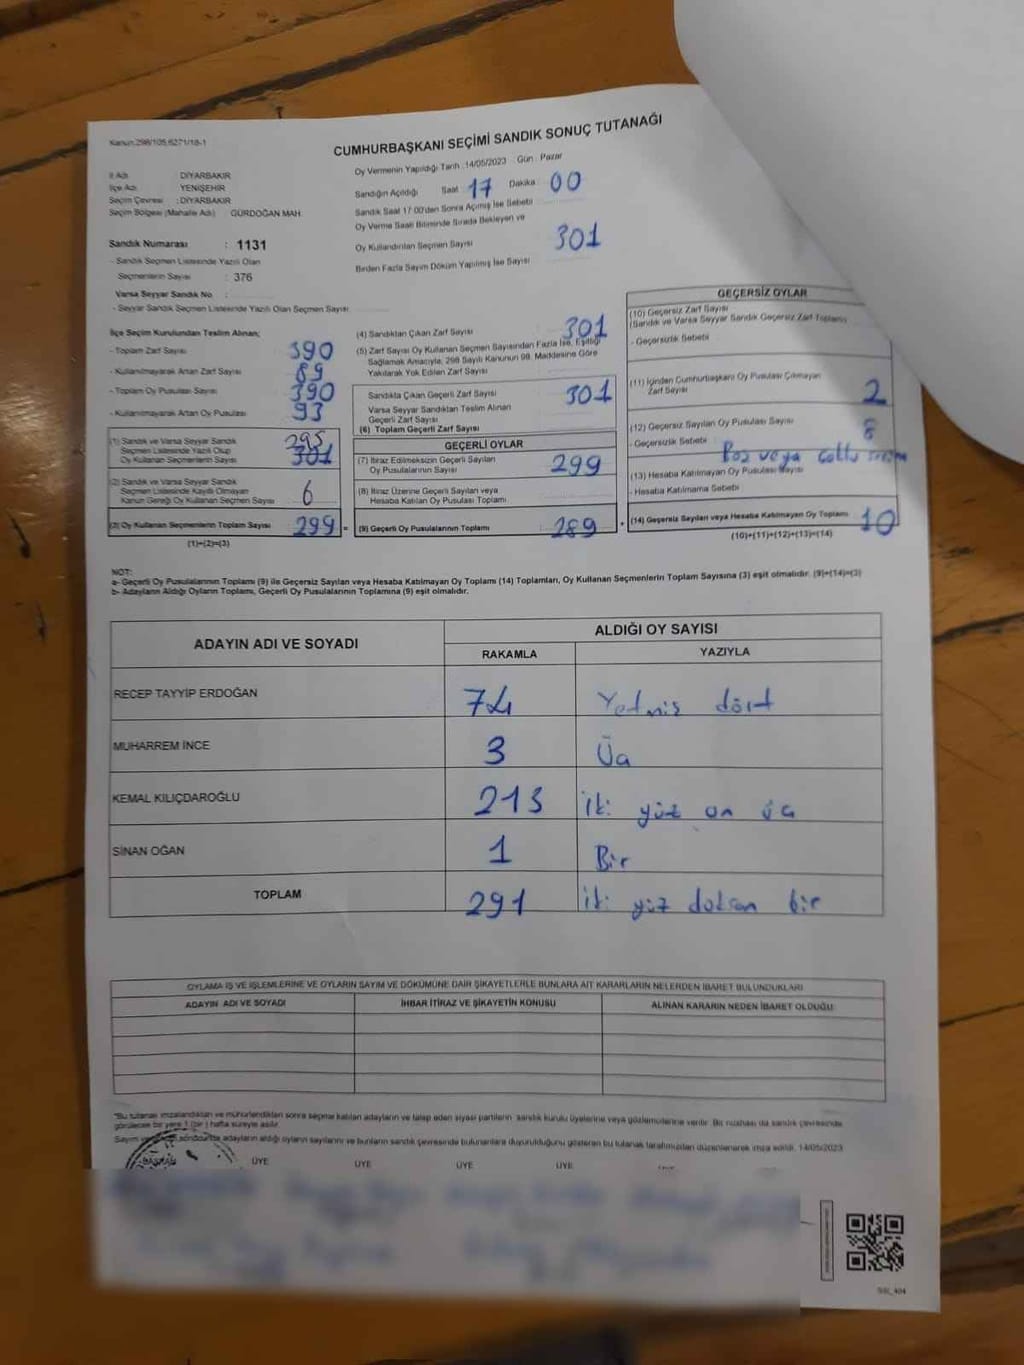 Kanun:298/105,6271/18-1
CUMHURBAŞKANI SEÇİMİ SANDIK SONUÇ TUTANAĞI
İl Adı DİYARBAKIR
İlçe Adı YENİŞEHİR
Seçim Çevresi :DİYARBAKIR
Seçim Bölgesi (Mahalle Adı) GÜRDOĞAN MAH.
Sandık Numarası : 1131
- Sandık Seçmen Listesinde Yazılı Olan
Seçmenlerin Sayısı : 376
Varsa Seyyar Sandık No :
- Seyyar Sandık Seçmen Listesinde Yazılı Olan Seçmen Sayısı
Oy Vermenin Yapıldığı Tarih :14/05/2023 Gün : Pazar
Sandığın Açıldığı Saat 17 Dakika 00
Sandık Saat 17:00'den Sonra Açılmış İse Sebebi
Oy Verme Saati Bitiminde Sırada Bekleyen ve
Oy Kullandırılan Seçmen Sayısı 301
Birden Fazla Sayım Döküm Yapılmış İse Sayısı
İlçe Seçim Kurulundan Teslim Alınan;
- Toplam Zarf Sayısı 390
- Kullanılmayarak Artan Zarf Sayısı 89
- Toplam Oy Pusulası Sayısı 390
- Kullanılmayarak Artan Oy Pusulası 93
(1) Sandık ve Varsa Seyyar Sandık 295
Seçmen Listesinde Yazılı Olup
Oy Kullanan Seçmenlerin Sayısı 301
(2) Sandık ve Varsa Seyyar Sandık
Seçmen Listesinde Kayıtlı Olmayan
Kanun Gereği Oy Kullanan Seçmen Sayısı 6
(3) Oy Kullanan Seçmenlerin Toplam Sayısı 299 =
(1)+(2)=(3)
(4) Sandıktan Çıkan Zarf Sayısı 301
(5) Zarf Sayısı Oy Kullanan Seçmen Sayısından Fazla İse, Eşitliği
Sağlamak Amacıyla, 298 Sayılı Kanunun 98. Maddesine Göre
Yakılarak Yok Edilen Zarf Sayısı
Sandıkta Çıkan Geçerli Zarf Sayısı 301
Varsa Seyyar Sandıktan Teslim Alınan
Geçerli Zarf Sayısı
(6) Toplam Geçerli Zarf Sayısı
GEÇERLİ OYLAR
(7) İtiraz Edilmeksizin Geçerli Sayılan
Oy Pusulalarının Sayısı 299
(8) İtiraz Üzerine Geçerli Sayılan veya
Hesaba Katılan Oy Pusulası Toplamı
(9) Geçerli Oy Pusulalarının Toplamı 289 +
GEÇERSİZ OYLAR
(10) Geçersiz Zarf Sayısı
(Sandık ve Varsa Seyyar Sandık Geçersiz Zarf Toplamı)
- Geçersizlik Sebebi
(11) İçinden Cumhurbaşkanı Oy Pusulası Çıkmayan
Zarf Sayısı 2
(12) Geçersiz Sayılan Oy Pusulası Sayısı 8
- Geçersizlik Sebebi Boş veya
(13) Hesaba Katılmayan Oy Pusulası Sayısı
- Hesaba Katılmama Sebebi
(14) Geçersiz Sayılan veya Hesaba Katılmayan Oy Toplamı 10
(10)+(11)+(12)+(13)=(14)
NOT:
a- Geçerli Oy Pusulalarının Toplamı (9) ile Geçersiz Sayılan veya Hesaba Katılmayan Oy Toplamı (14) Toplamları, Oy Kullanan Seçmenlerin Toplam Sayısına (3) eşit olmalıdır. (9)+(14)=(3)
b- Adayların Aldığı Oyların Toplamı, Geçerli Oy Pusulalarının Toplamına (9) eşit olmalıdır.
ADAYIN ADI VE SOYADI ALDIĞI OY SAYISI
RAKAMLA YAZIYLA
RECEP TAYYİP ERDOĞAN 74 Yetmiş dört
MUHARREM İNCE 3 Üç
KEMAL KILIÇDAROĞLU 213 iki yüz on üç
SİNAN OĞAN 1 Bir
TOPLAM 291 iki yüz doksan bir
OYLAMA İŞ VE İŞLEMLERİNE VE OYLARIN SAYIM VE DÖKÜMÜNE DAİR ŞİKAYETLERLE BUNLARA AİT KARARLARIN NELERDEN İBARET BULUNDUKLARI
ADAYIN ADI VE SOYADI İHBAR İTİRAZ VE ŞİKAYETİN KONUSU ALINAN KARARIN NEDEN İBARET OLDUĞU
"Bu tutanak imzalandıktan ve mühürlendikten sonra seçime katılan adayların ve talep eden siyasi partilerin sandık kurulu üyelerine veya gözlemcilerine verilir. Bir nüshası da sandık çevresinde
görülecek bir yere 1 (bir) hafta süreyle asılır.
Sayım sonucunda adayların aldığı oyların sayılarını ve bunların sandık çevresinde bulunanlara duyurulduğunu gösteren bu tutanak tarafımızdan düzenlenerek imza edildi. 14/05/2023
BAŞKAN ÜYE ÜYE ÜYE ÜYE